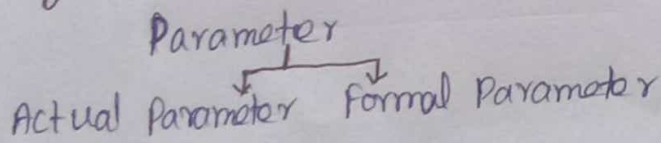 Parameter
Actual Parameter Formal Parameter